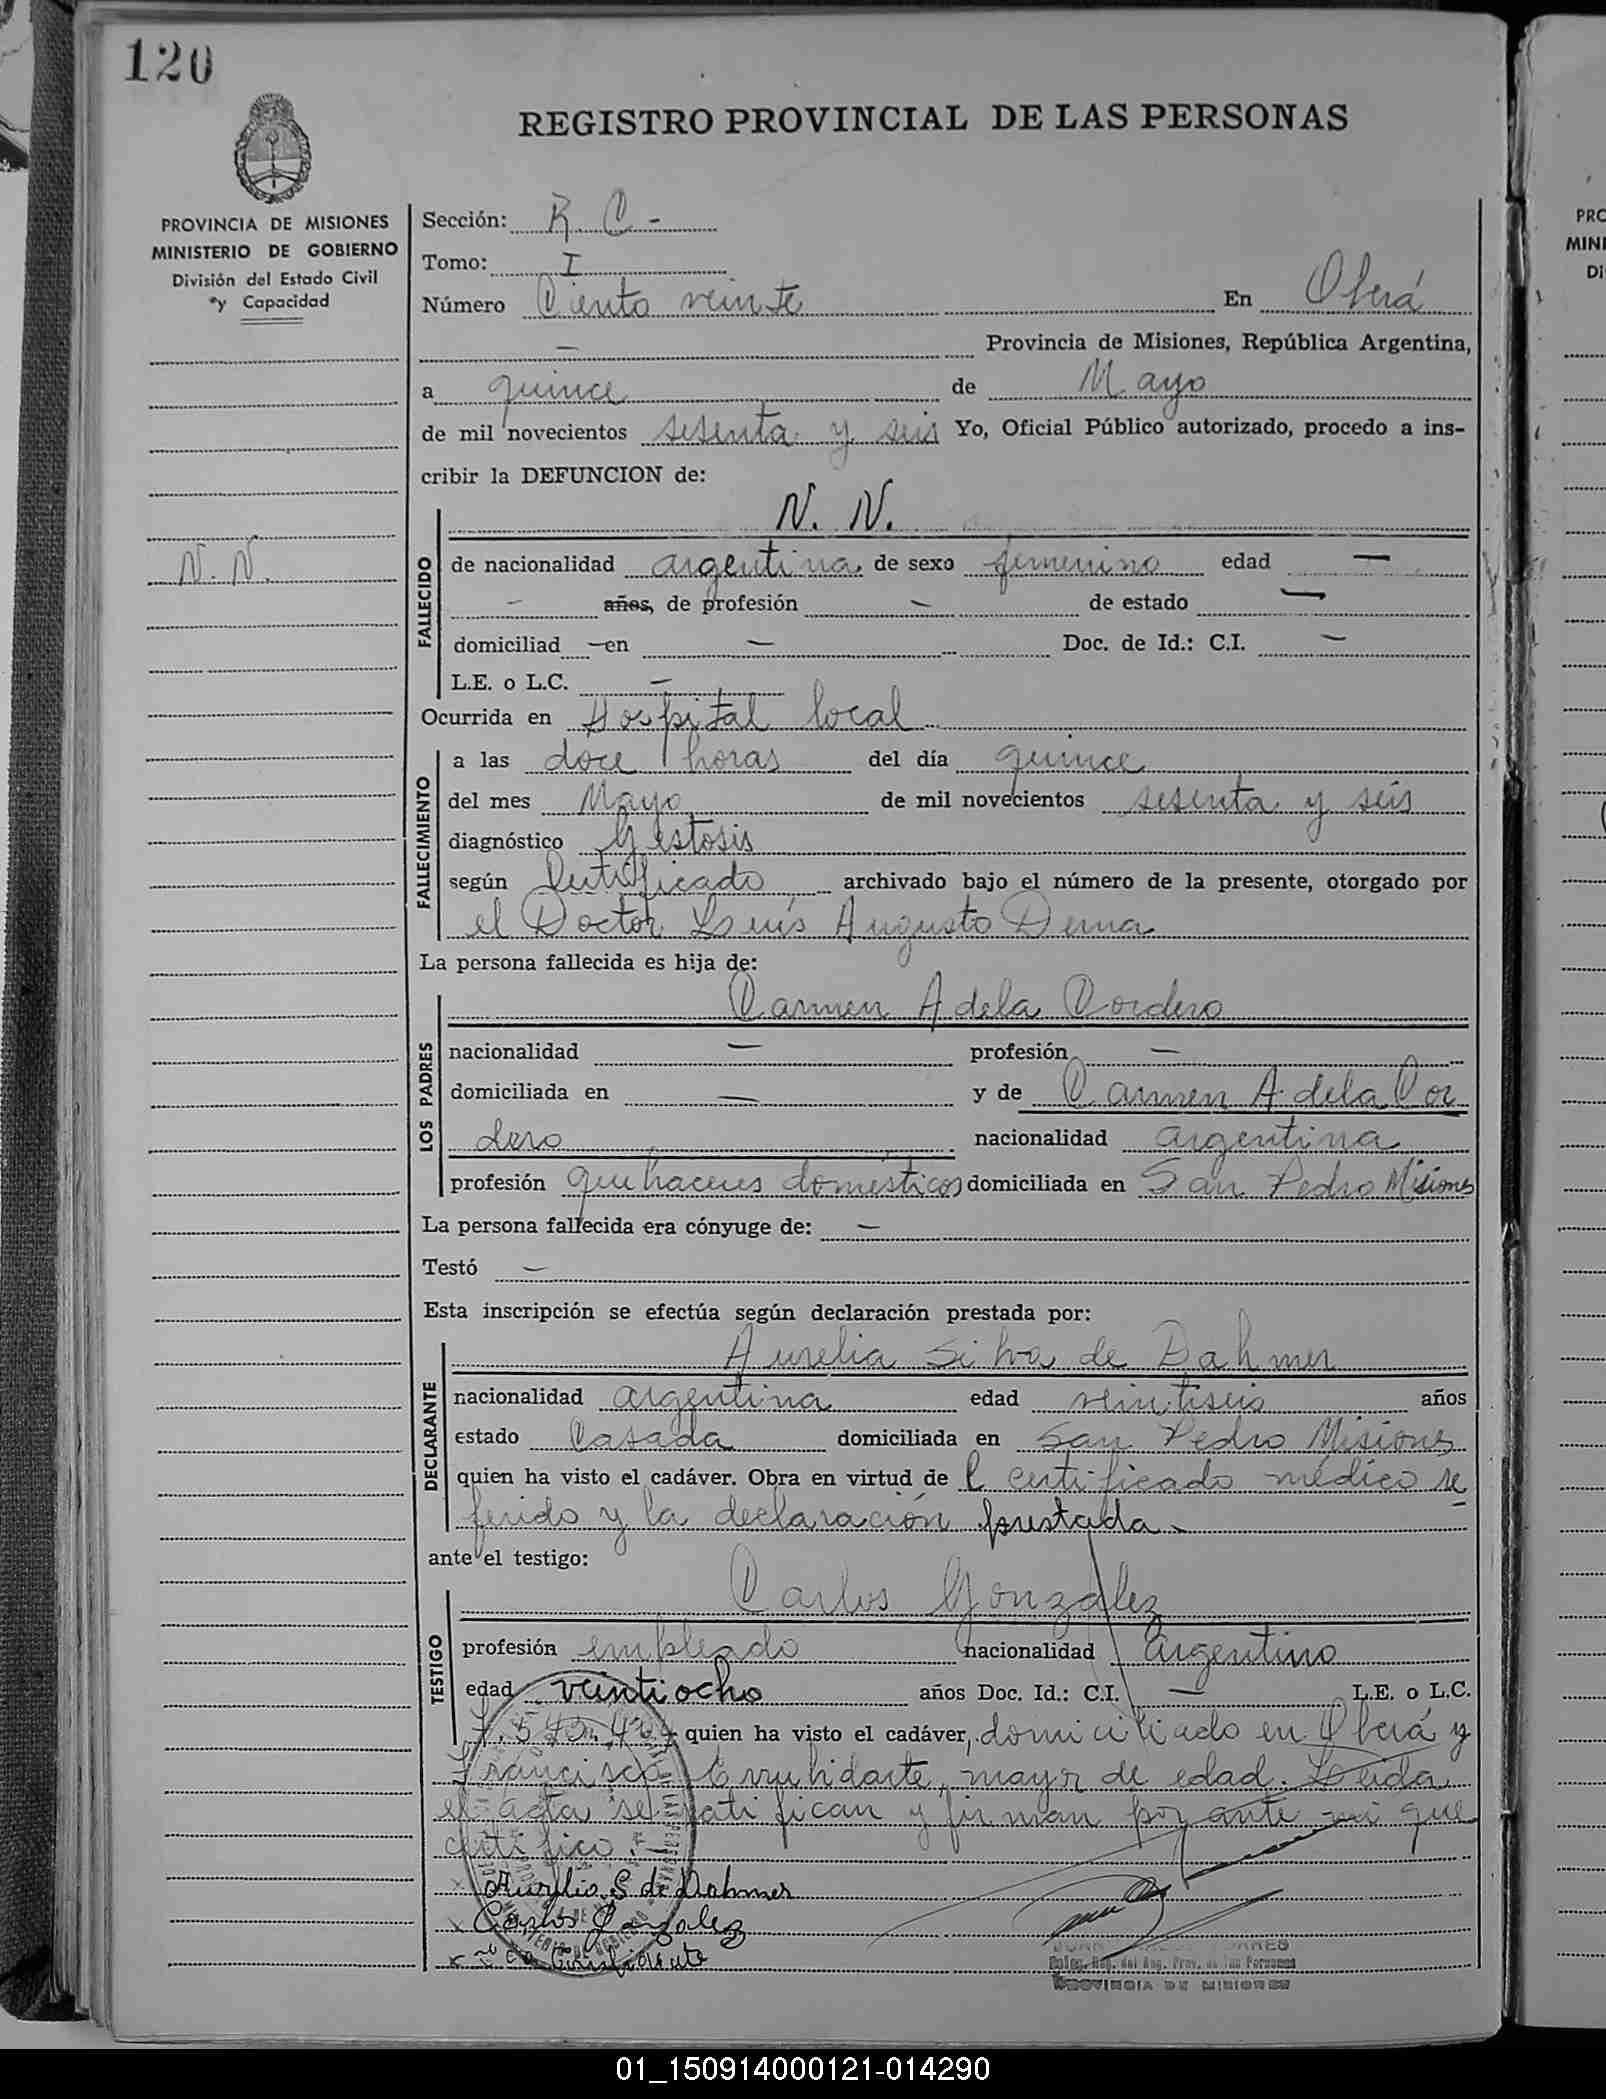 120
REGISTRO PROVINCIAL DE LAS PERSONAS
PROVINCIA DE MISIONES
MINISTERIO DE GOBIERNO
División del Estado Civil
y Capacidad
N. N.
Sección: R C -
Tomo: I
Número Ciento veinte En Oberá
— Provincia de Misiones, República Argentina,
a quince de Mayo
de mil novecientos sesenta y seis Yo, Oficial Público autorizado, procedo a ins-
cribir la DEFUNCION de:
N. N.
FALLECIDO
de nacionalidad argentina de sexo femenino edad —
— años, de profesión — de estado —
domiciliad — en — Doc. de Id.: C.I. —
L.E. o L.C. —
Ocurrida en Hospital local
FALLECIMIENTO
a las doce horas del día quince
del mes Mayo de mil novecientos sesenta y seis
diagnóstico Gestosis
según Certificado archivado bajo el número de la presente, otorgado por
el Doctor Luís Augusto Derna
La persona fallecida es hija de:
LOS PADRES
Carmen Adela Cordero
nacionalidad — profesión —
domiciliada en — y de Carmen Adela Cor
dero nacionalidad argentina
profesión quehaceres domésticos domiciliada en San Pedro Misiones
La persona fallecida era cónyuge de: —
Testó —
Esta inscripción se efectúa según declaración prestada por:
DECLARANTE
Aurelia Silva de Dahmer
nacionalidad argentina edad veintiseis años
estado Casada domiciliada en San Pedro Misiones
quien ha visto el cadáver. Obra en virtud de l certificado médico re
ferido y la declaración prestada -
ante el testigo:
TESTIGO
Carlos Gonzalez
profesión empleado nacionalidad argentino
edad veintiocho años Doc. Id.: C.I. — L.E. o L.C.
quien ha visto el cadáver, domiciliado en Oberá y
mayor de edad. Leida
el acta se ratifican y firman por ante mi que
certifico. -
x Aurelia S de Dahmer
x Carlos Gonzalez
x
PROVINCIA DE MISIONES
01_150914000121-014290